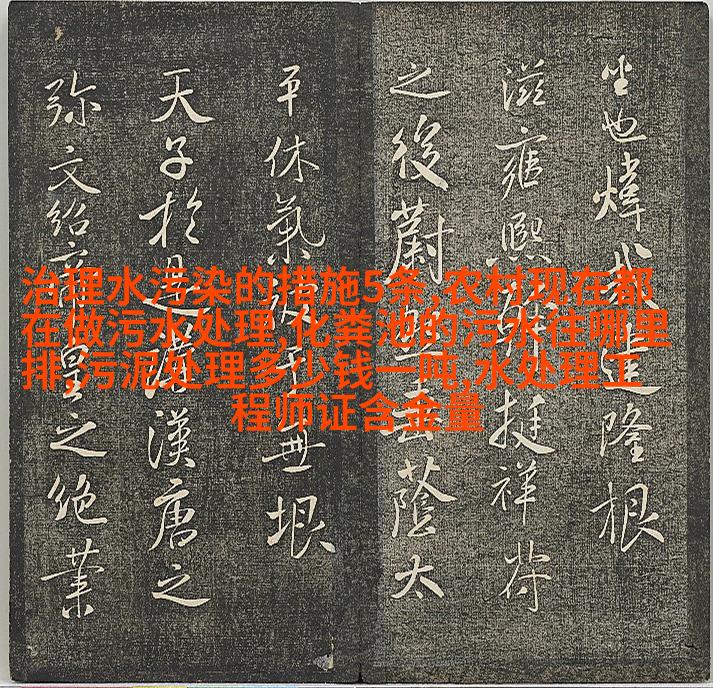 坐也煒隆根
滋雍熙挺祥符
之後蔚蔭太
平休氣無垠
天子於漢唐之
弥文紹皇之絶業
治理水污染的措施5条,农村现在都
在做污水处理,化粪池的污水往哪里
排,污泥处理多少钱一吨,水处理工
程师证含金量